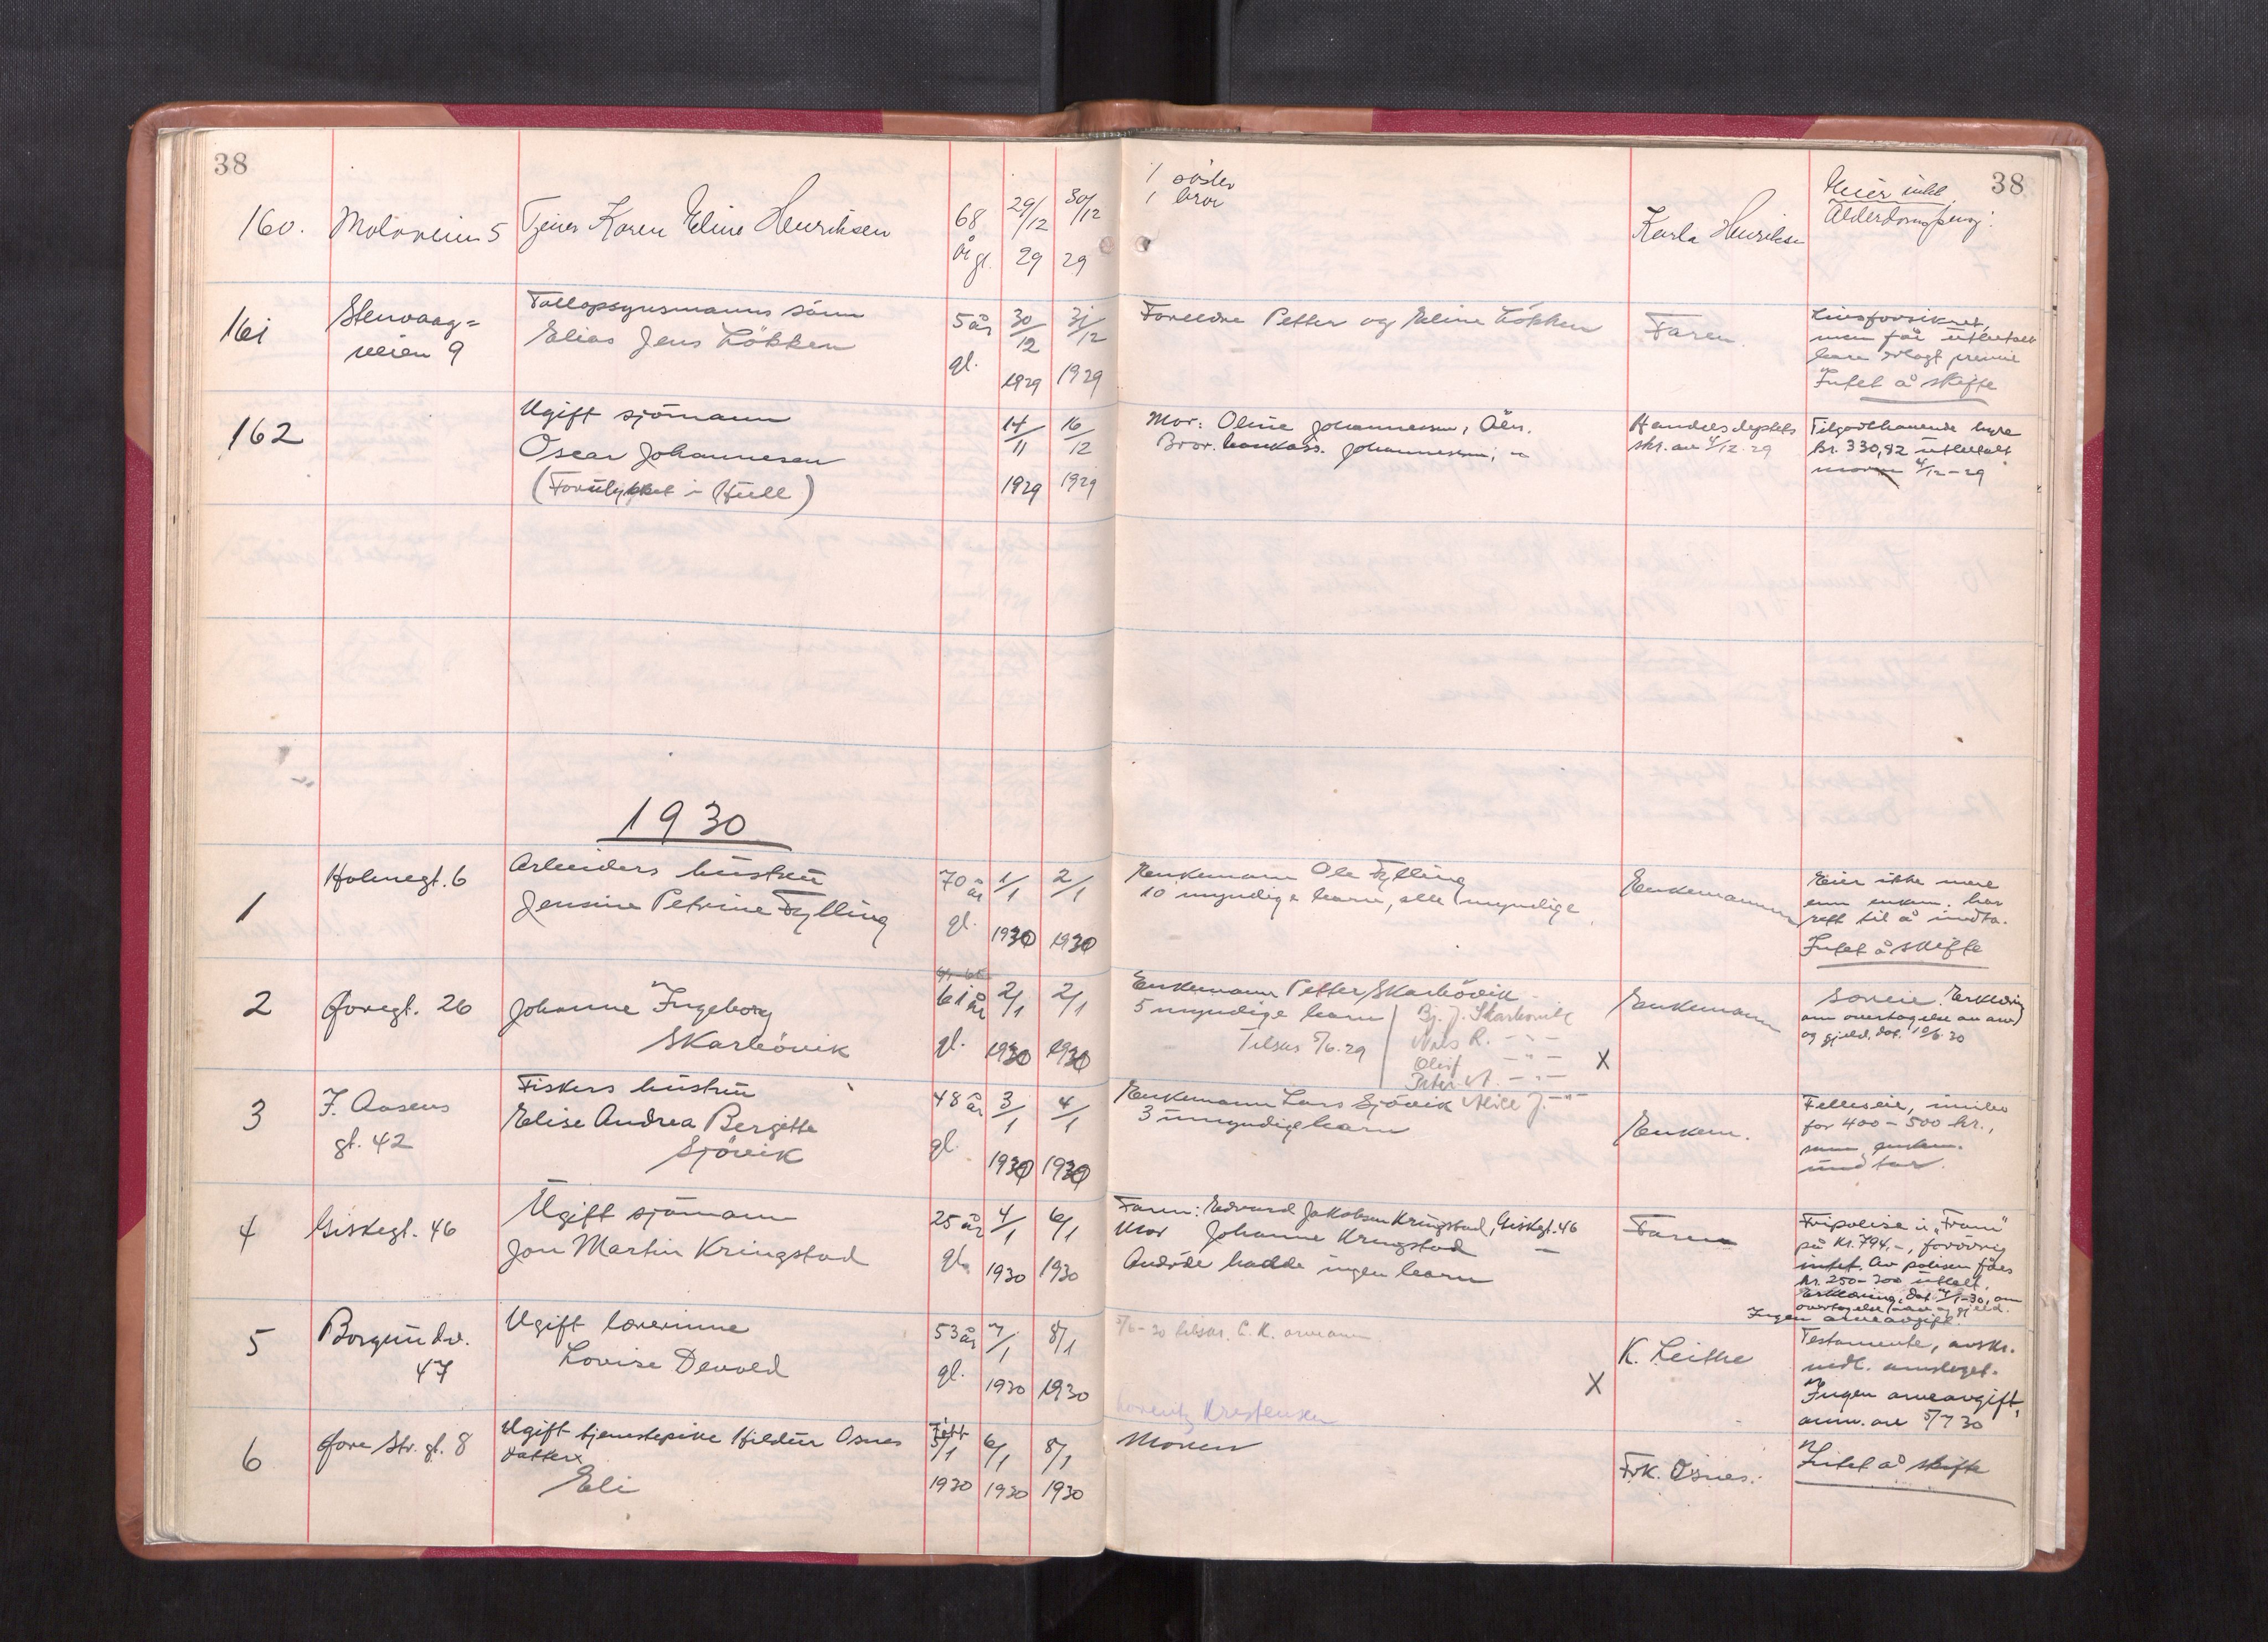 38
160.
Moloveien 5
Tjener Karen Eline Henriksen
68
år gl.
29/12
29
30/12
29
1 søster
1 bror
Karla Henriksen
38
Eier intet
Alderdom
161
Stenvaag=
veien 9
Tollopsynsmanns sönn
Elias Jens Lökken
5 år
gl.
30/12
1929
31/12
1929
Foreldre Petter og Eline Lökken
Faren.
Livsforsikret,
men får utbetalt
bare premie
Intet å skifte
162
Ugift sjömann
Oscar Johannesen
(Forulykket i Hull)
14/11
1929
16/12
1929
Mor: Oline Johannesen,
Bror. Johannesen, "
Handelsdeptets
skr. av 4/12 29
Tilgodehavende hyre
kr. 330,92 utbetalt
moren 4/12-29
1930
1
Holmegt. 6
Arbeiders hustru
Jensine Petrine Fylling
70 år
gl.
1/1
1930
2/1
1930
Enkemann Ole Fylling
10 myndige barn, alle myndige
Enkemannen
Eier ikke mere
enn enkem. har
rett til å undta.
Intet å skifte
2
Øvregt. 26
Johanne Ingeborg
Skarbövik
61 år
gl.
2/1
1930
2/1
1930
Enkemann Petter Skarbövik
5 myndige barn
Bj. J. Skarbövik
Tilskr 5/6.29
Nils R. - " -
Olaf - " -
Peter A. - " -
X
Enkemann
Særeie. Erklæring
om overtagelse av arv
og gjeld, dat. 10/6 30
3
I. Aasens
gt. 42
Fiskers hustru
Elise Andrea Bergitte
Sjövik
48 år
gl.
3/1
1930
4/1
1930
Enkemann Lars Sjövik
Alice J. - " -
3 umyndige barn
Enkem.
Felleseie, innbo
for 400-500 kr.,
som enkem.
undtar.
4
Giskegt. 46
Ugift sjömann
Jon Martin Kringstad
25 år
gl.
4/1
1930
6/1
1930
Faren: Edvard Jakobsen Kringstad, Giskegt. 46
Mor Johanne Kringstad —
Avdöde hadde ingen barn
Faren
Fripolise i "Fram"
på kr. 794.-, forövrig
intet. Av polisen fåes
kr. 250-300 utbet.
Erklæring, dat. 7/1-30, om
overtagelse av arv og gjeld.
Ingen arveavgift
5
Borgundv.
47
Ugift lærerinne
Lovise Devold
53 år
gl.
7/1
1930
8/1
1930
5/6-30 tilskr. C. K.
X
K. Leithe
Testamente, avskr.
vedl. anmeldet.
Ingen arveavgift,
anm. av 5/7 30
6
Øvre Str. gt. 8
Ugift tjenestepike Hildur Osnes
datter
Eli
Född
5/1
1930
6/1
1930
8/1
1930
Kristensen
Moren
Frk. Osnes.
Intet å skifte